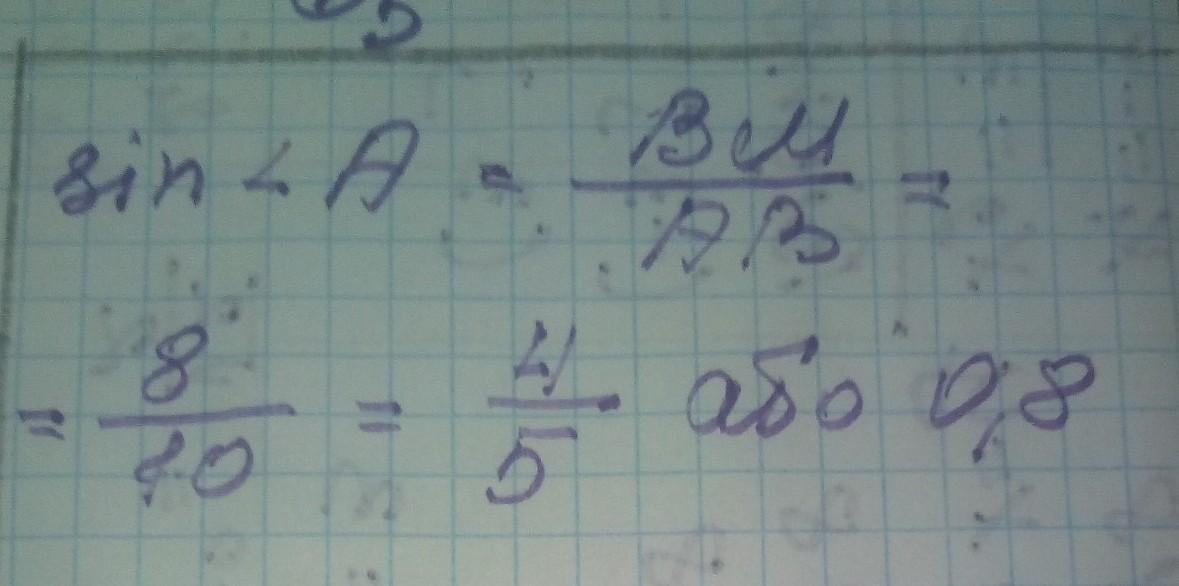 sin ∠A = BM/AB =
= 8/10 = 4/5 або 0,8